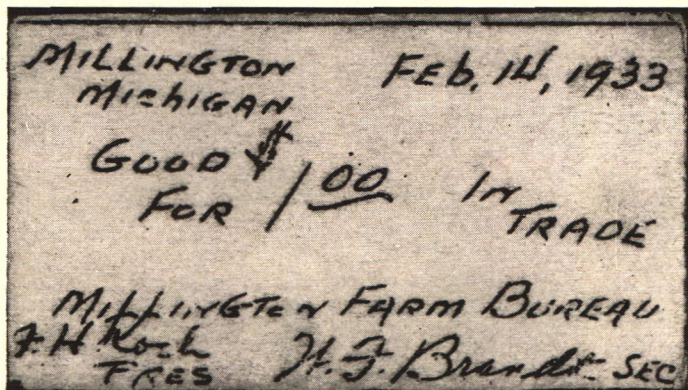 MILLINGTON MICHIGAN
Feb. 14, 1933
GOOD FOR $1.00 IN TRADE
MILLINGTON FARM BUREAU
F.H. Koch PRES
H.F. Brandt SEC